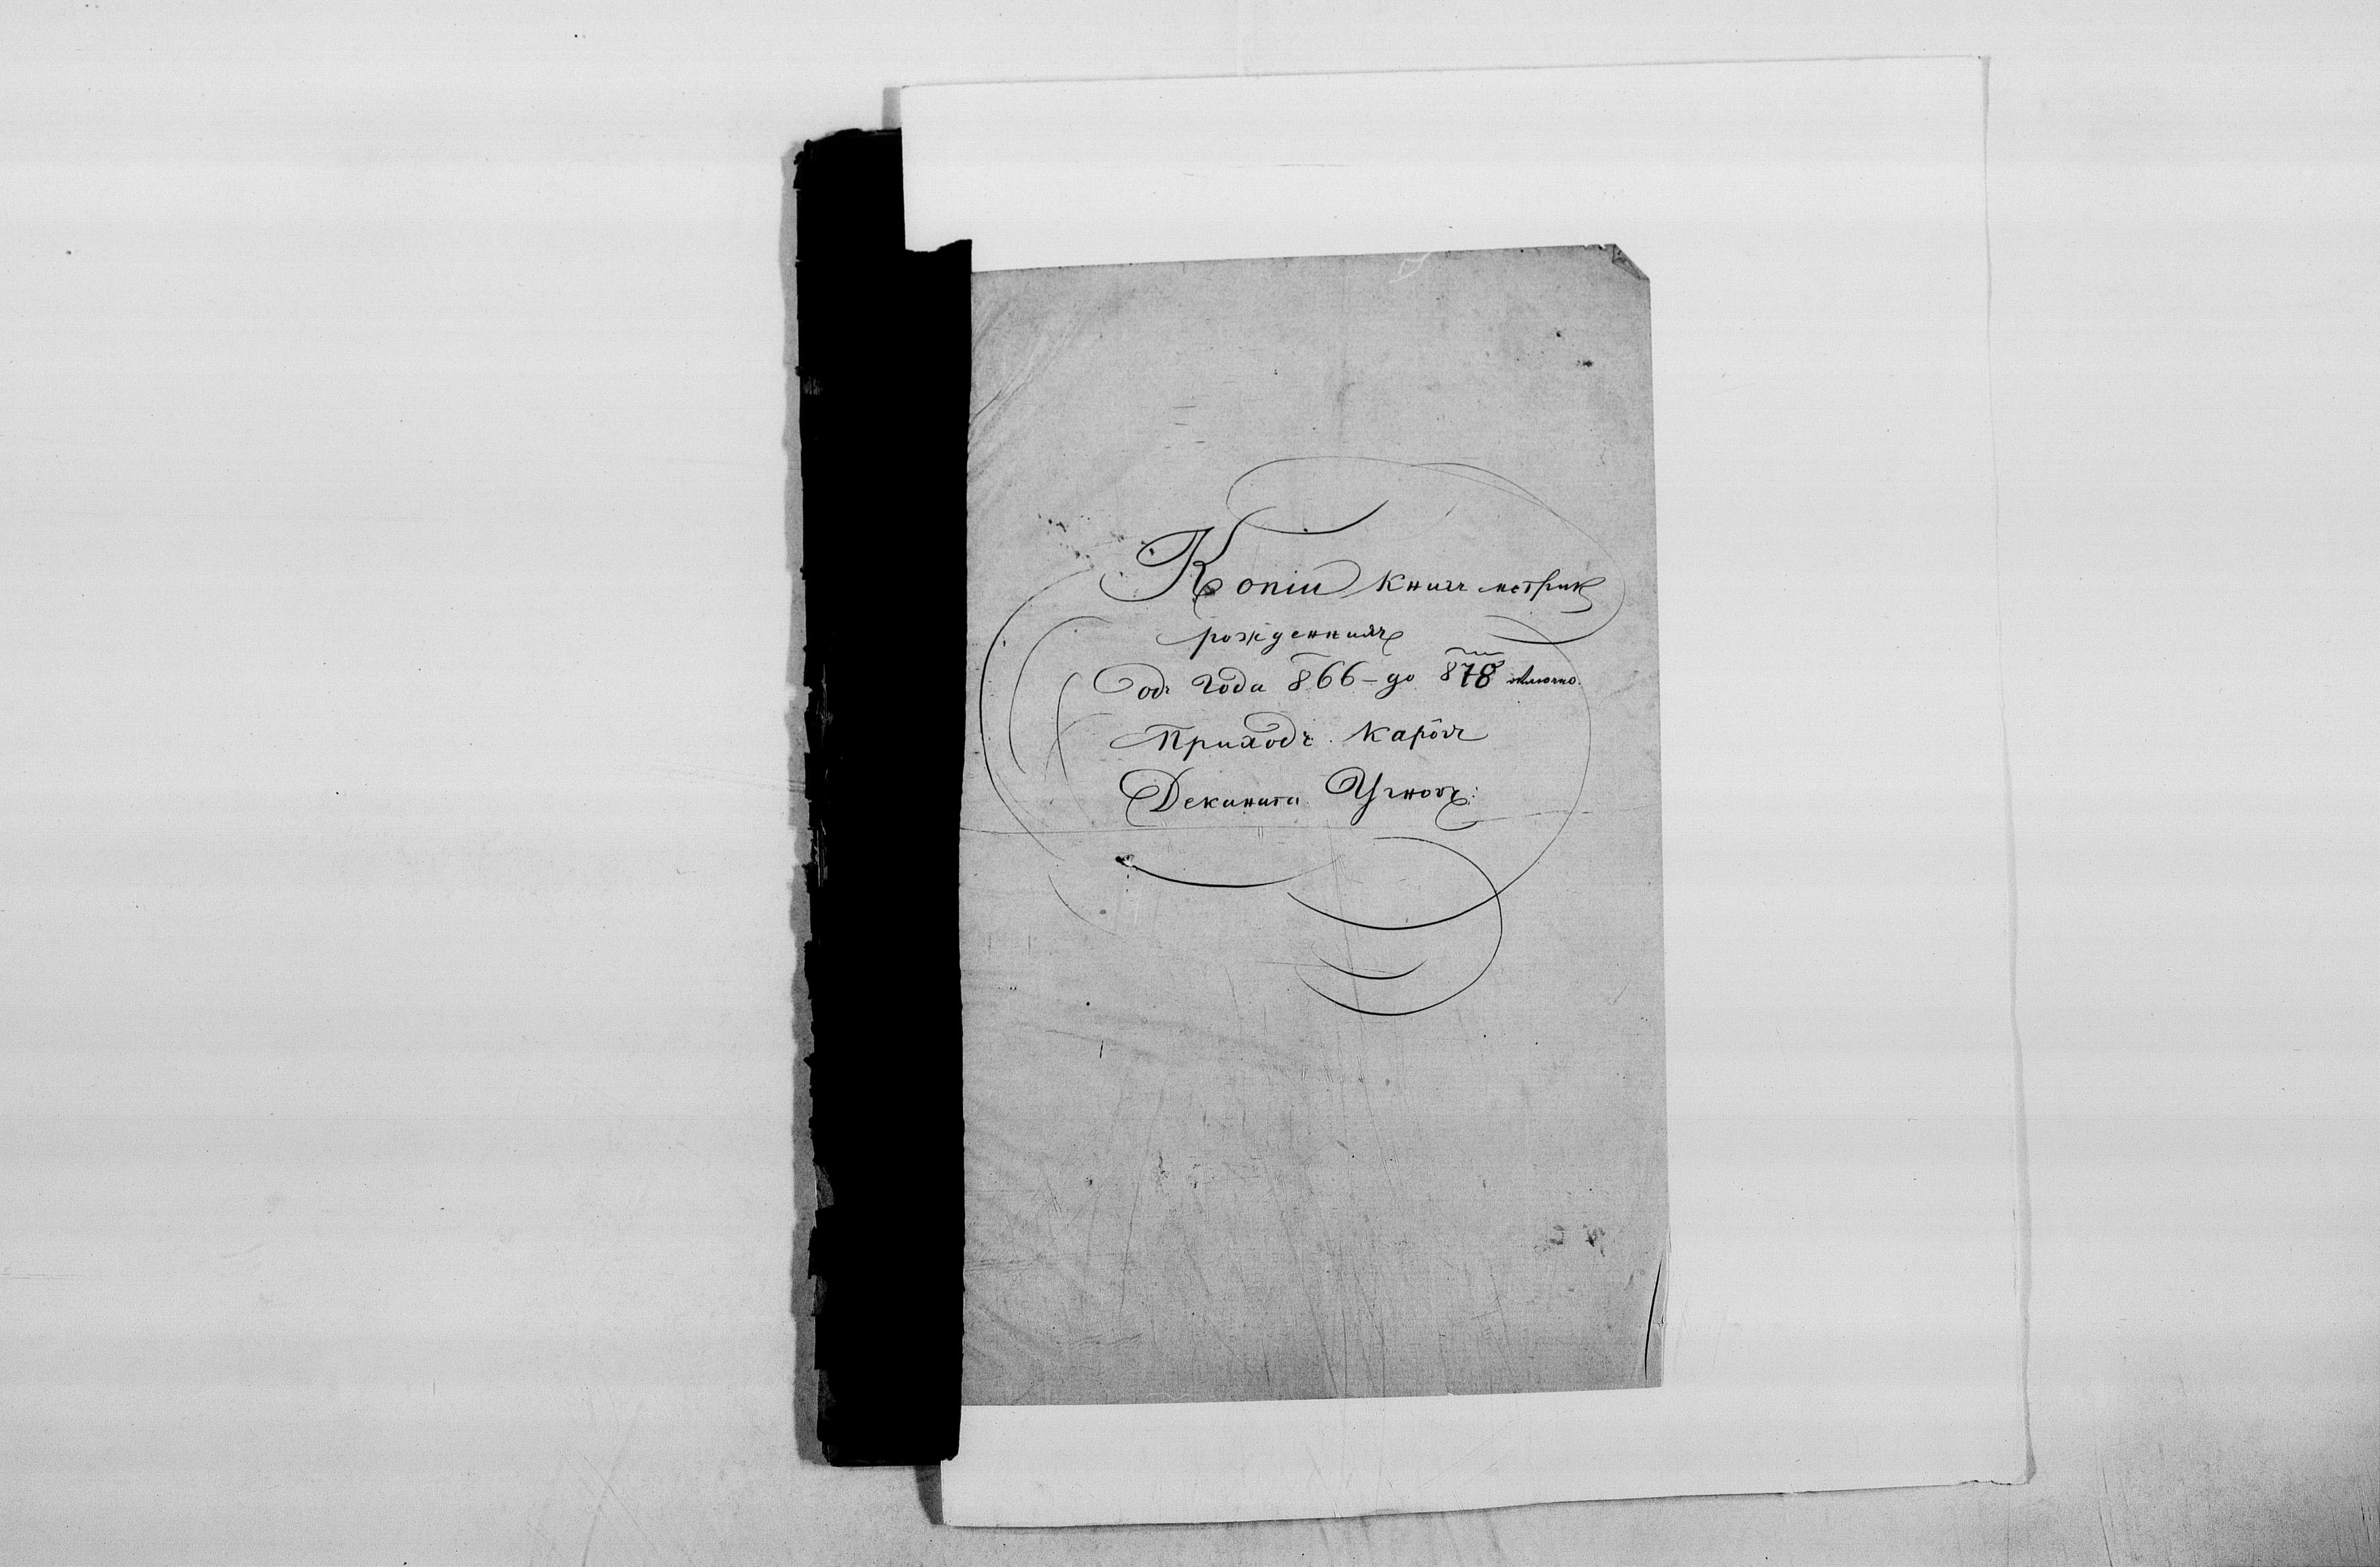 Копіи книгъ метрик
рожденныхъ
одъ года 866 – до 878 включно.
Приходъ Карôвъ
Деканата Угновъ: